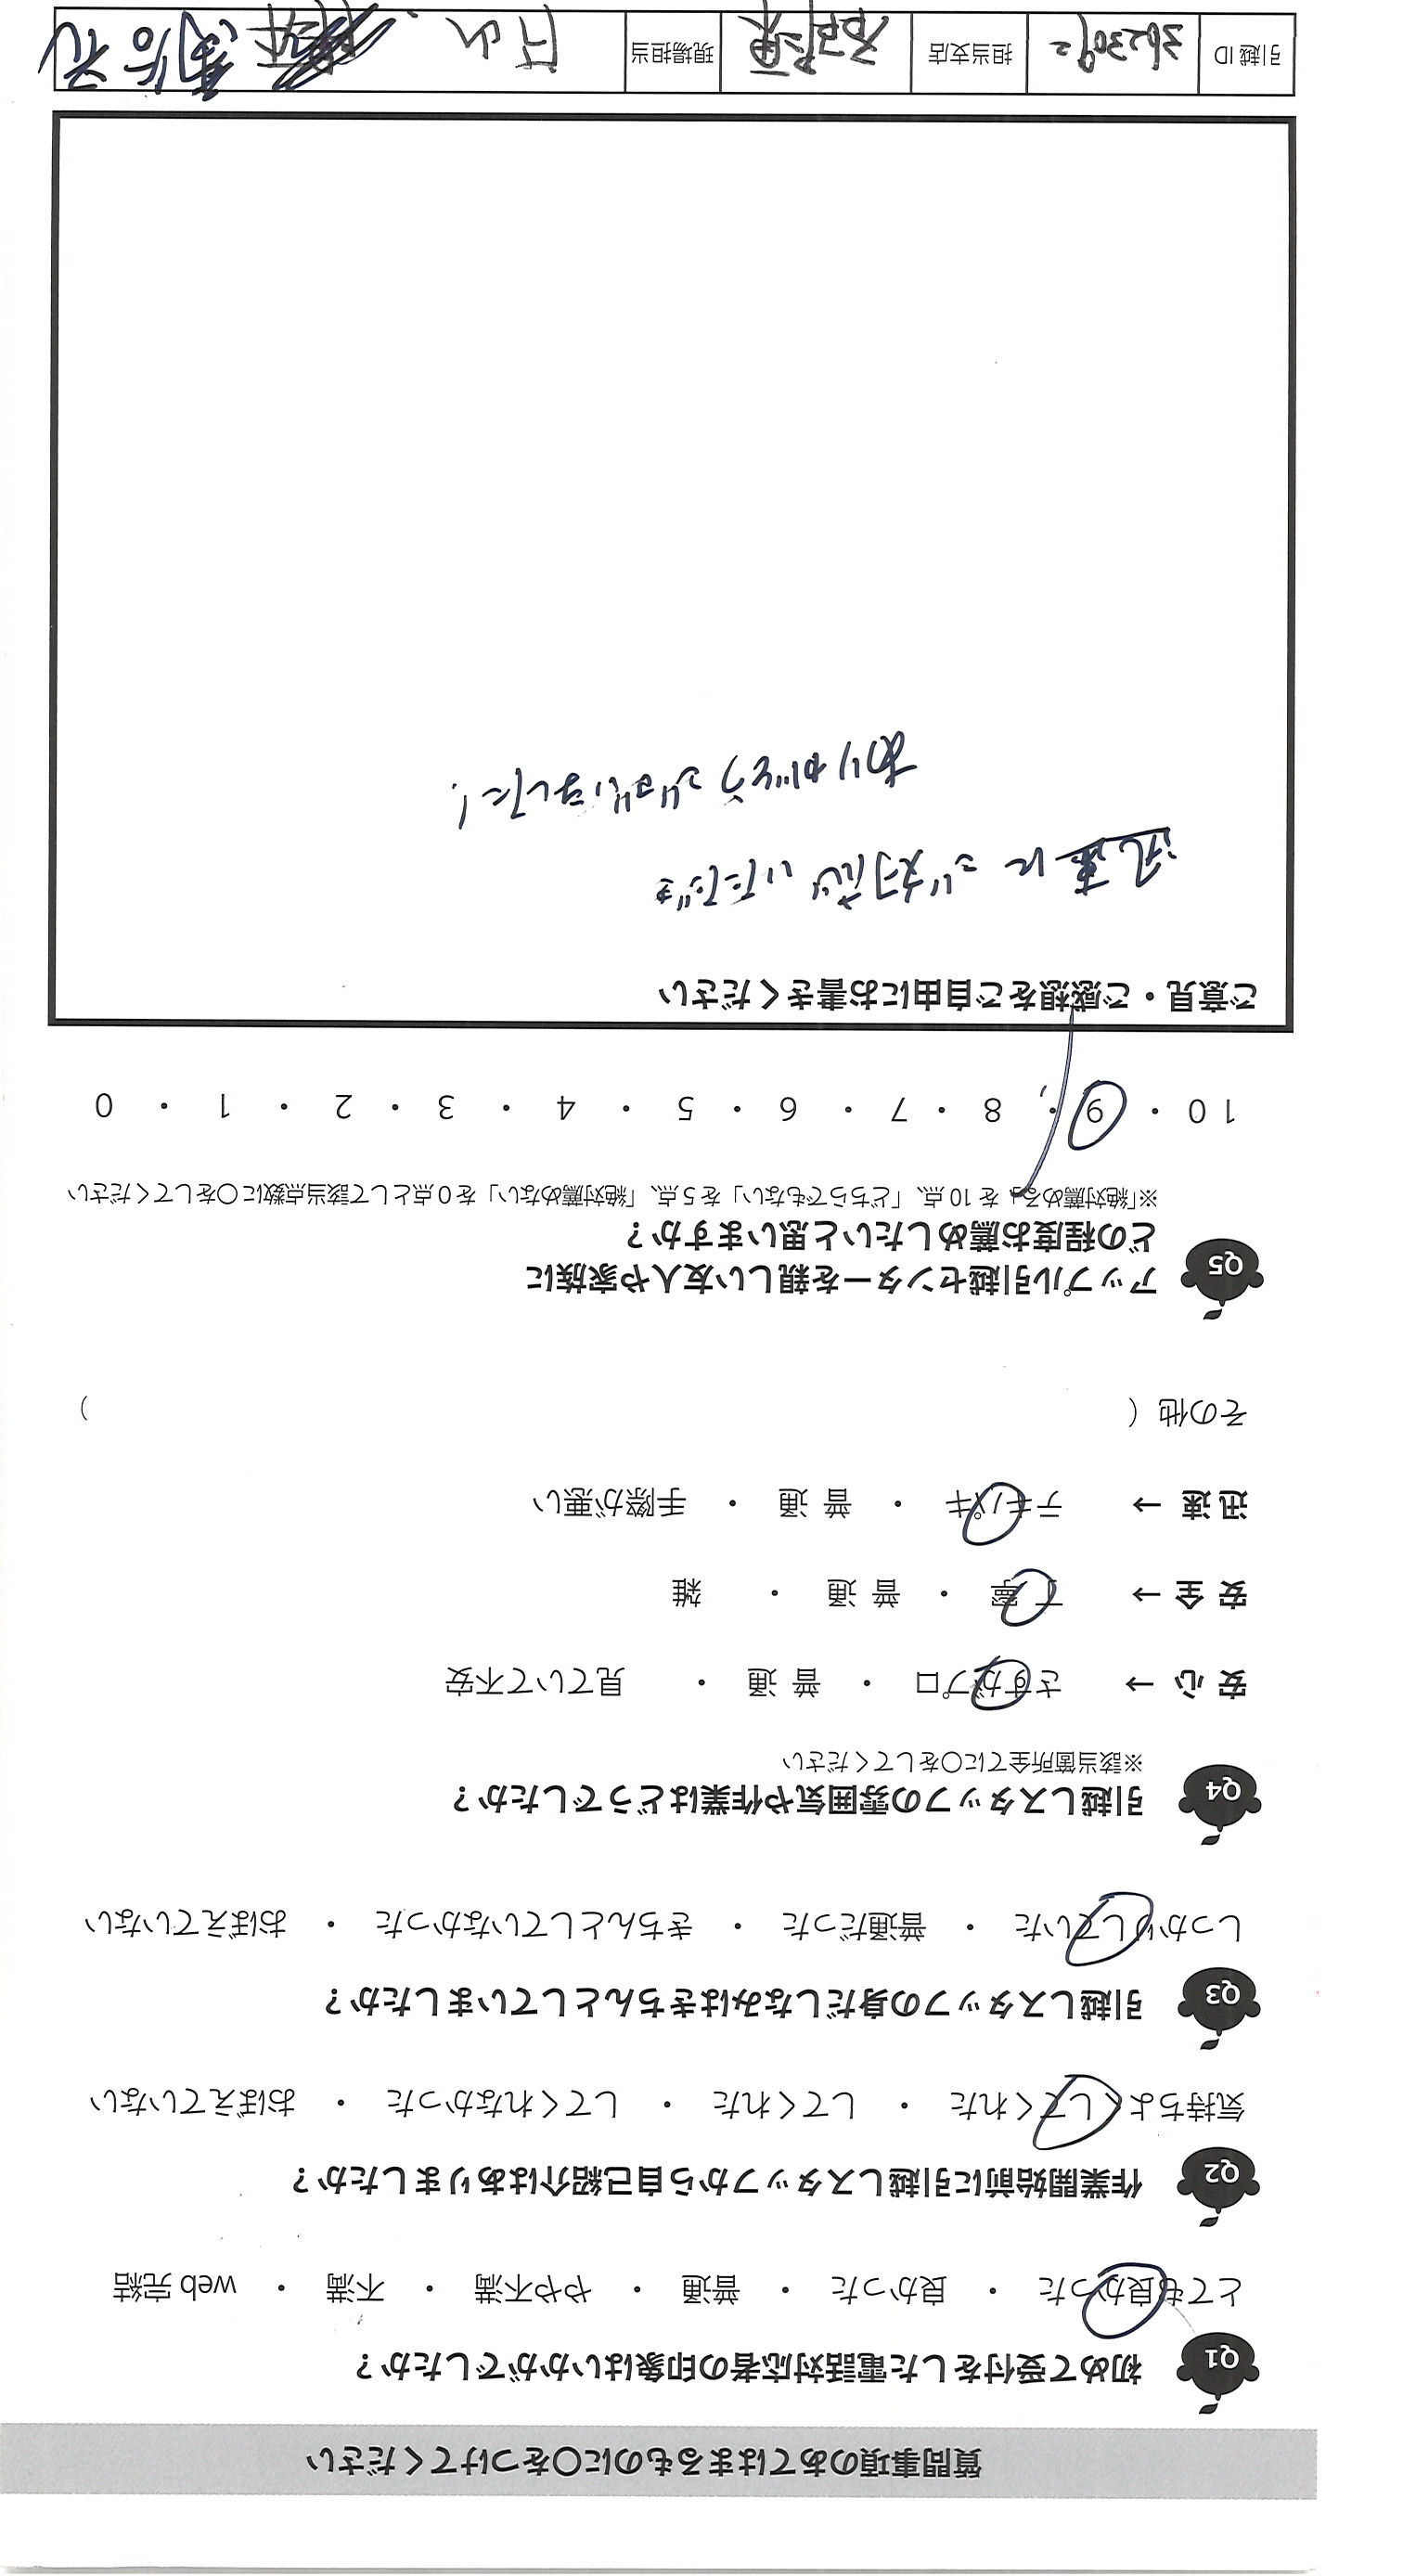 質問事項のあてはまるものに○をつけてください
Q1 初めて受付をした電話対応者の印象はいかがでしたか？
とても良かった ・ 良かった ・ 普通 ・ やや不満 ・ 不満 ・ web 完結
Q2 作業開始前に引越しスタッフから自己紹介はありましたか？
気持ちよくしてくれた ・ してくれた ・ してくれなかった ・ おぼえていない
Q3 引越しスタッフの身だしなみはきちんとしていましたか？
しっかりしていた ・ 普通だった ・ きちんとしていなかった ・ おぼえていない
Q4 引越しスタッフの雰囲気や作業はどうでしたか？
※該当箇所全てに○をしてください
安心 → さすがプロ ・ 普通 ・ 見ていて不安
安全 → 丁寧 ・ 普通 ・ 雑
迅速 → テキパキ ・ 普通 ・ 手際が悪い
その他（ ）
Q5 アップル引越センターを親しい友人や家族に
どの程度お薦めしたいと思いますか？
※「絶対薦める」を10点、「どちらでもない」を5点、「絶対薦めない」を0点として該当点数に○をしてください
10 ・ 9 ・ 8 ・ 7 ・ 6 ・ 5 ・ 4 ・ 3 ・ 2 ・ 1 ・ 0
ご意見・ご感想をご自由にお書きください
迅速にご対応いただき
ありがとうございました！
引越ID 3623092 担当支店 現場担当